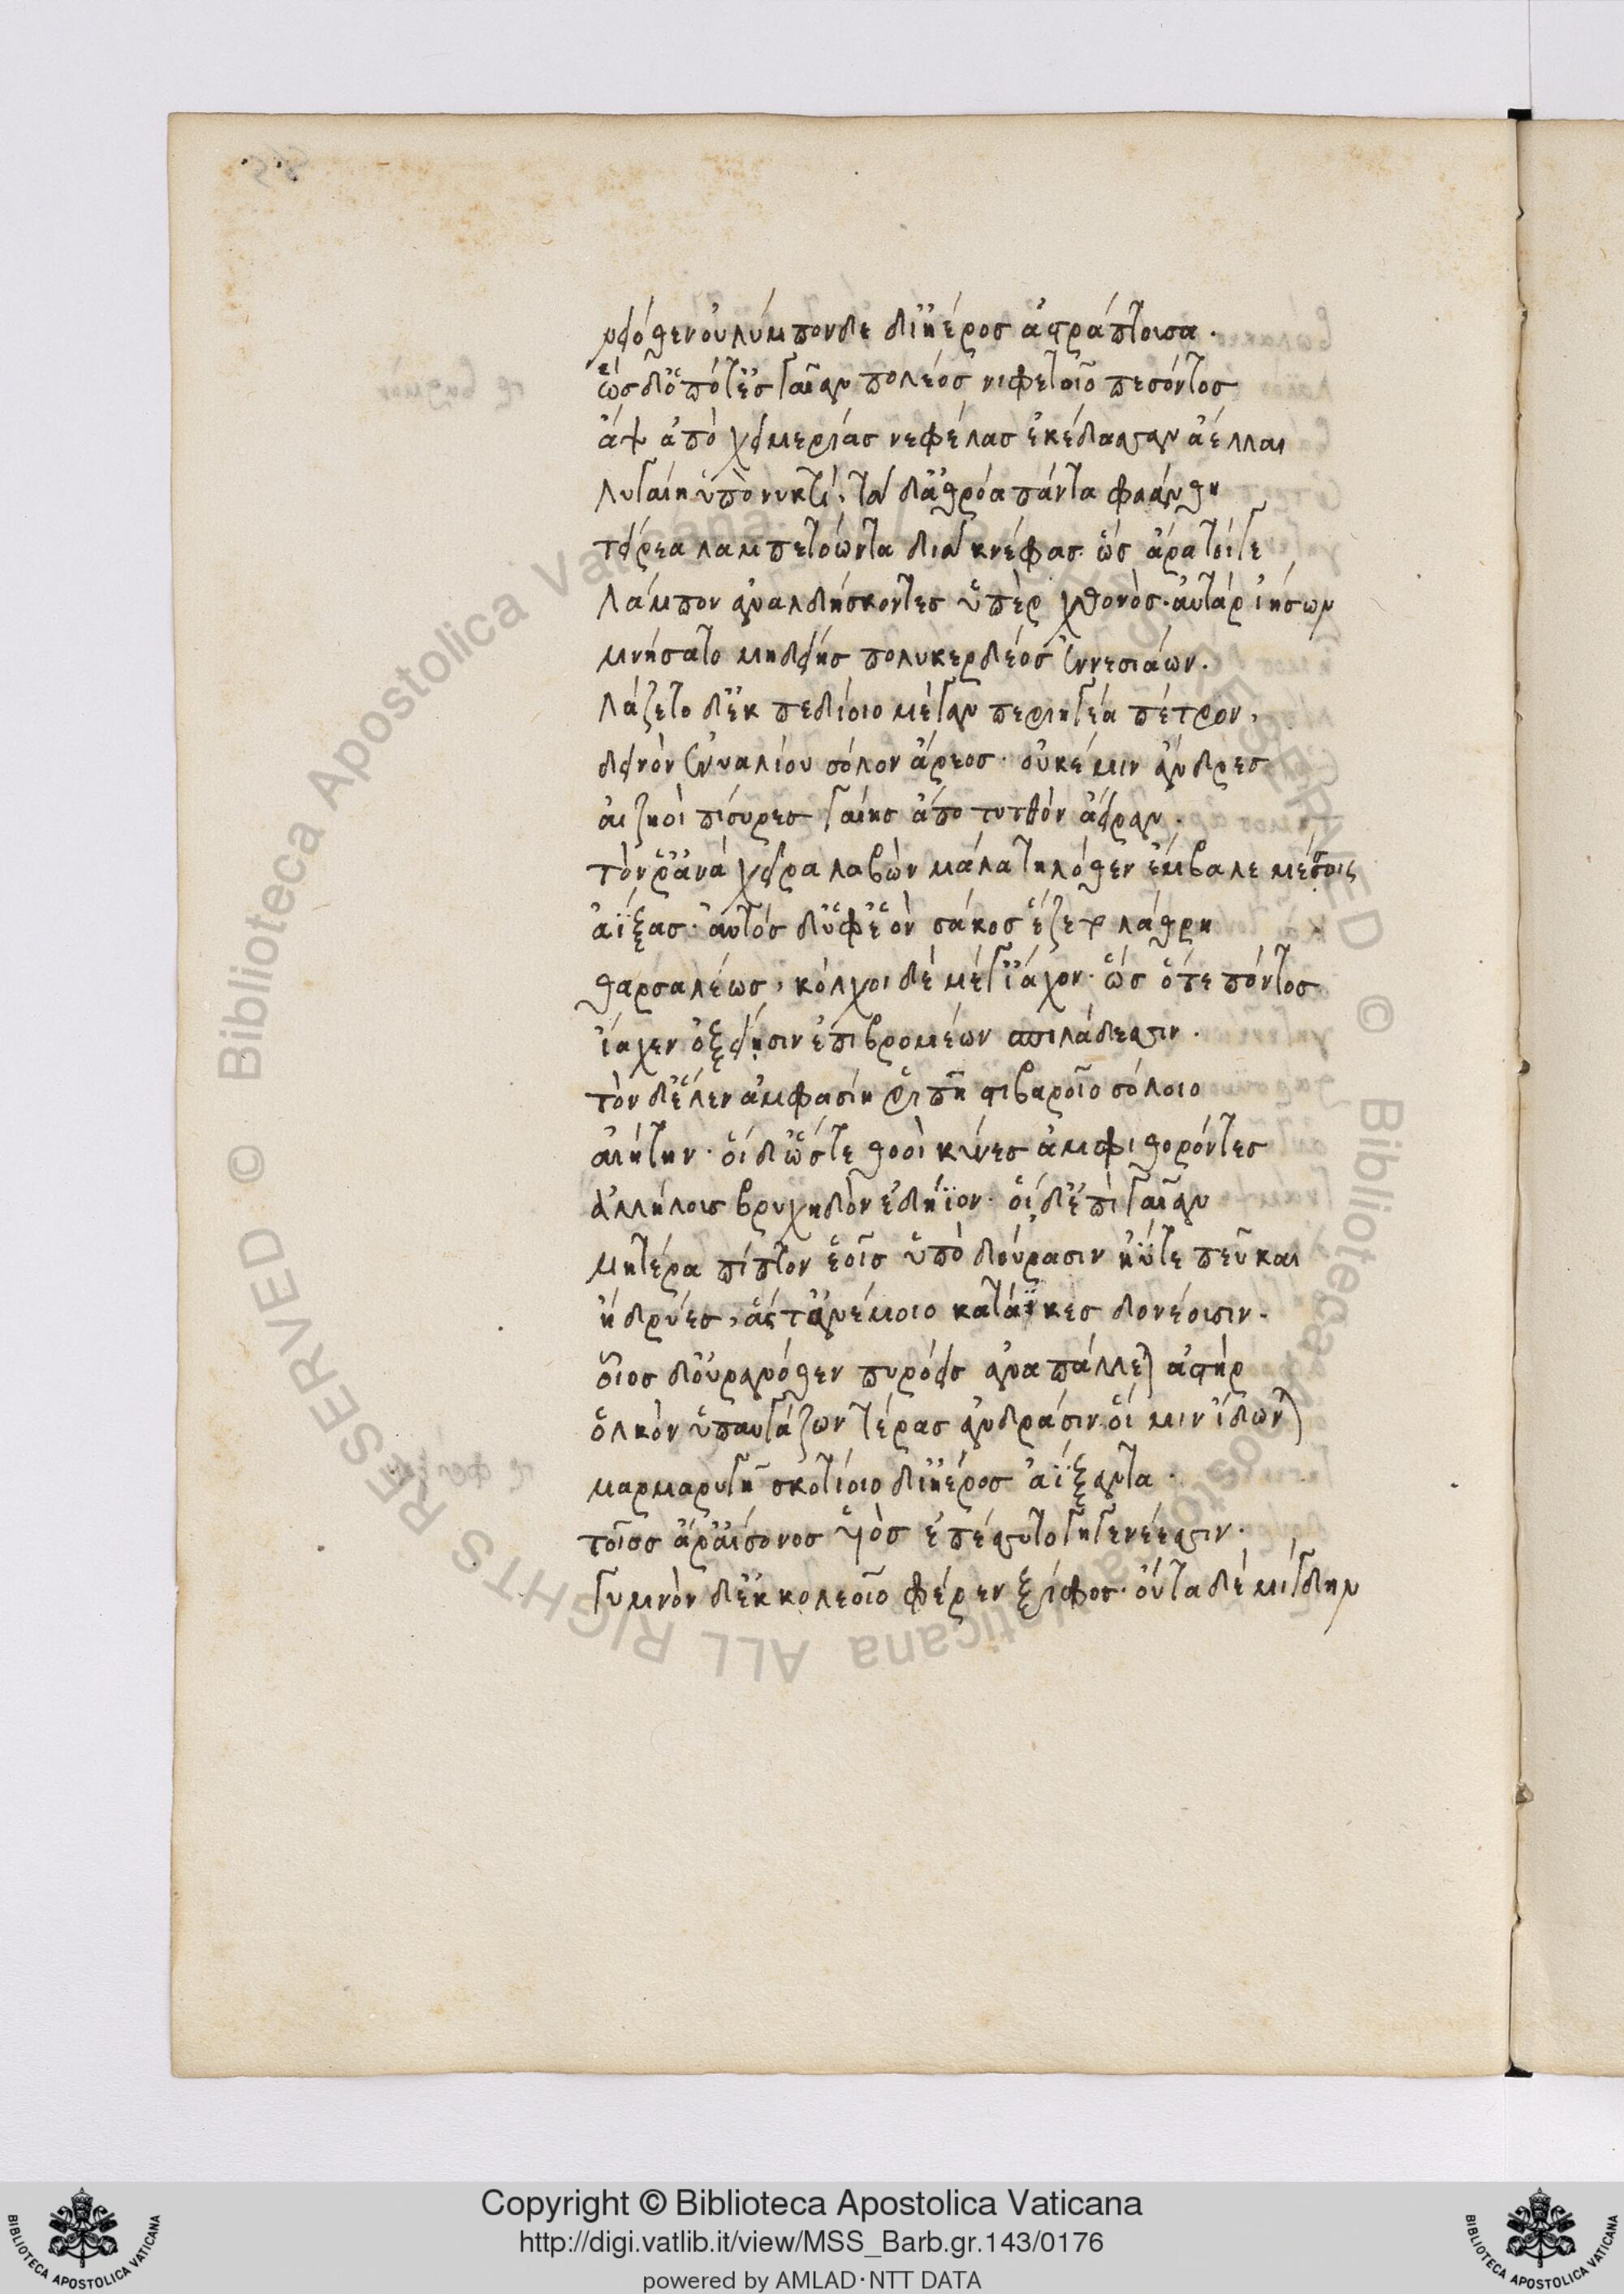 νειόθεν οὐλύμπονδε δι' ἠέρος ἀστράπτουσα.
ὡς δ' ὁπότ' ἐς γαῖαν πολέος νιφετοῖο πεσόντος
ἂψ ἀπὸ χειμερίας νεφέλας ἐκέδασσαν ἄελλαι
λυγαίη ὑπὸ νυκτί· τὰ δ' ἀθρόα πάντα φαάνθη
τείρεα λαμπετόωντα διὰ κνέφας. ὣς ἄρα τοίγε
λάμπον ἀναλδήσκοντες ὑπὲρ χθονὸς· αὐτὰρ ἰήσων
μνήσατο μηδείης πολυκερδέος ἐννεσιάων.
λάζετο δ' ἐκ πεδίοιο μέγαν περιηγέα πέτρον,
δεινὸν ἐνυαλίου σόλον ἄρεος· οὐκέ μιν ἄνδρες
αἰζηοὶ πίσυρες γαίης ἄπο τυτθὸν ἄειραν.
τόν ῥ' ἀνὰ χεῖρα λαβὼν μάλα τηλόθεν ἔμβαλε μέσοις
ἀΐξας· αὐτὸς δ' ὑφ' ἑὸν σάκος ἕζετο λάθρη
θαρσαλέως, κόλχοι δὲ μέγ' ἴαχον· ὡς ὅτε πόντος
ἴαχεν ὀξείῃσιν ἐπιβρομέων σπιλάδεσσιν.
τὸν δ' ἕλεν ἀμφασίη ῥιπῇ στιβαροῖο σόλοιο
αἰήτην. οἱ δ' ὥστε θοοὶ κύνες ἀμφιθορόντες
ἀλλήλους βρυχηδὸν ἐδήϊον. οἱ δ' ἐπὶ γαῖαν
μητέρα πίπτον ἑοῖς ὑπὸ δούρασιν ἠΰτε πεῦκαι
ἢ δρύες, ἅς τ' ἀνέμοιο κατάϊκες δονέουσιν.
οἷος δ' οὐρανόθεν πυρόεις ἀναπάλλεται ἀστὴρ
ὁλκὸν ὑπαυγάζων τέρας ἀνδράσιν οἵ μιν ἴδωνται
μαρμαρυγῇ σκοτίοιο δι' ἠέρος ἀΐξαντα.
τοῖος ἄρ' αἴσονος υἱὸς ἐπέσσυτο γηγενέεσσιν.
γυμνὸν δ' ἐκ κολεοῖο φέρεν ξίφος· οὖτα δὲ μίγδην
Copyright © Biblioteca Apostolica Vaticana
http://digi.vatlib.it/view/MSS_Barb.gr.143/0176
powered by AMLAD·NTT DATA